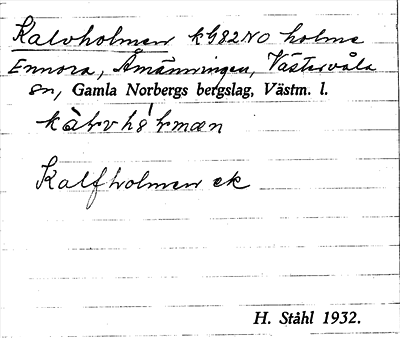 Kalvholmen kG82NO holme
Ennora, Åmänningen, Västervåla
sn, Gamla Norbergs bergslag, Västm. l.
Kalfholmen ek
H. Ståhl 1932.